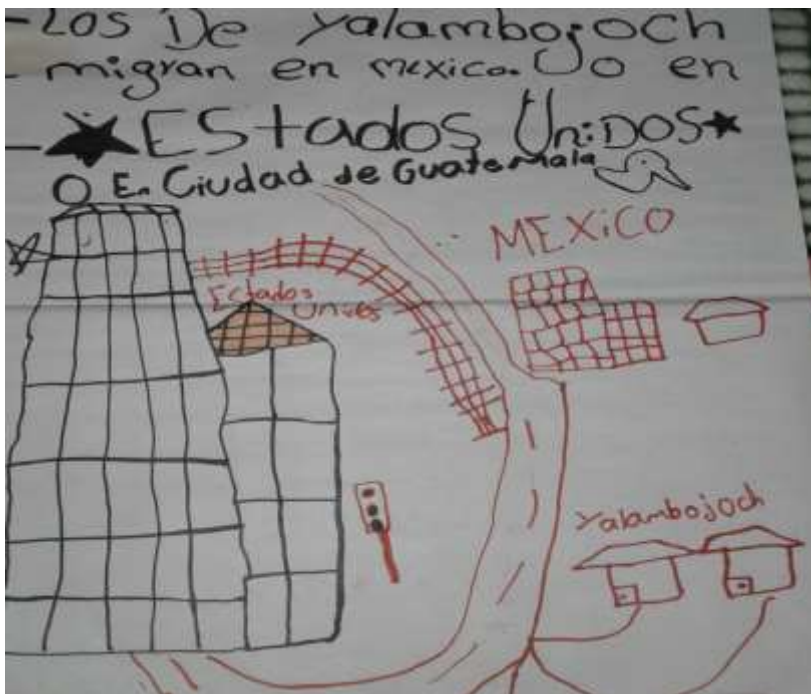 -Los De Yalambojoch
- migran en mexico. O en
- EStados UniDOS
O En Ciudad de Guatemala
MEXiCO
Estados
Unidos
Yalambojoch